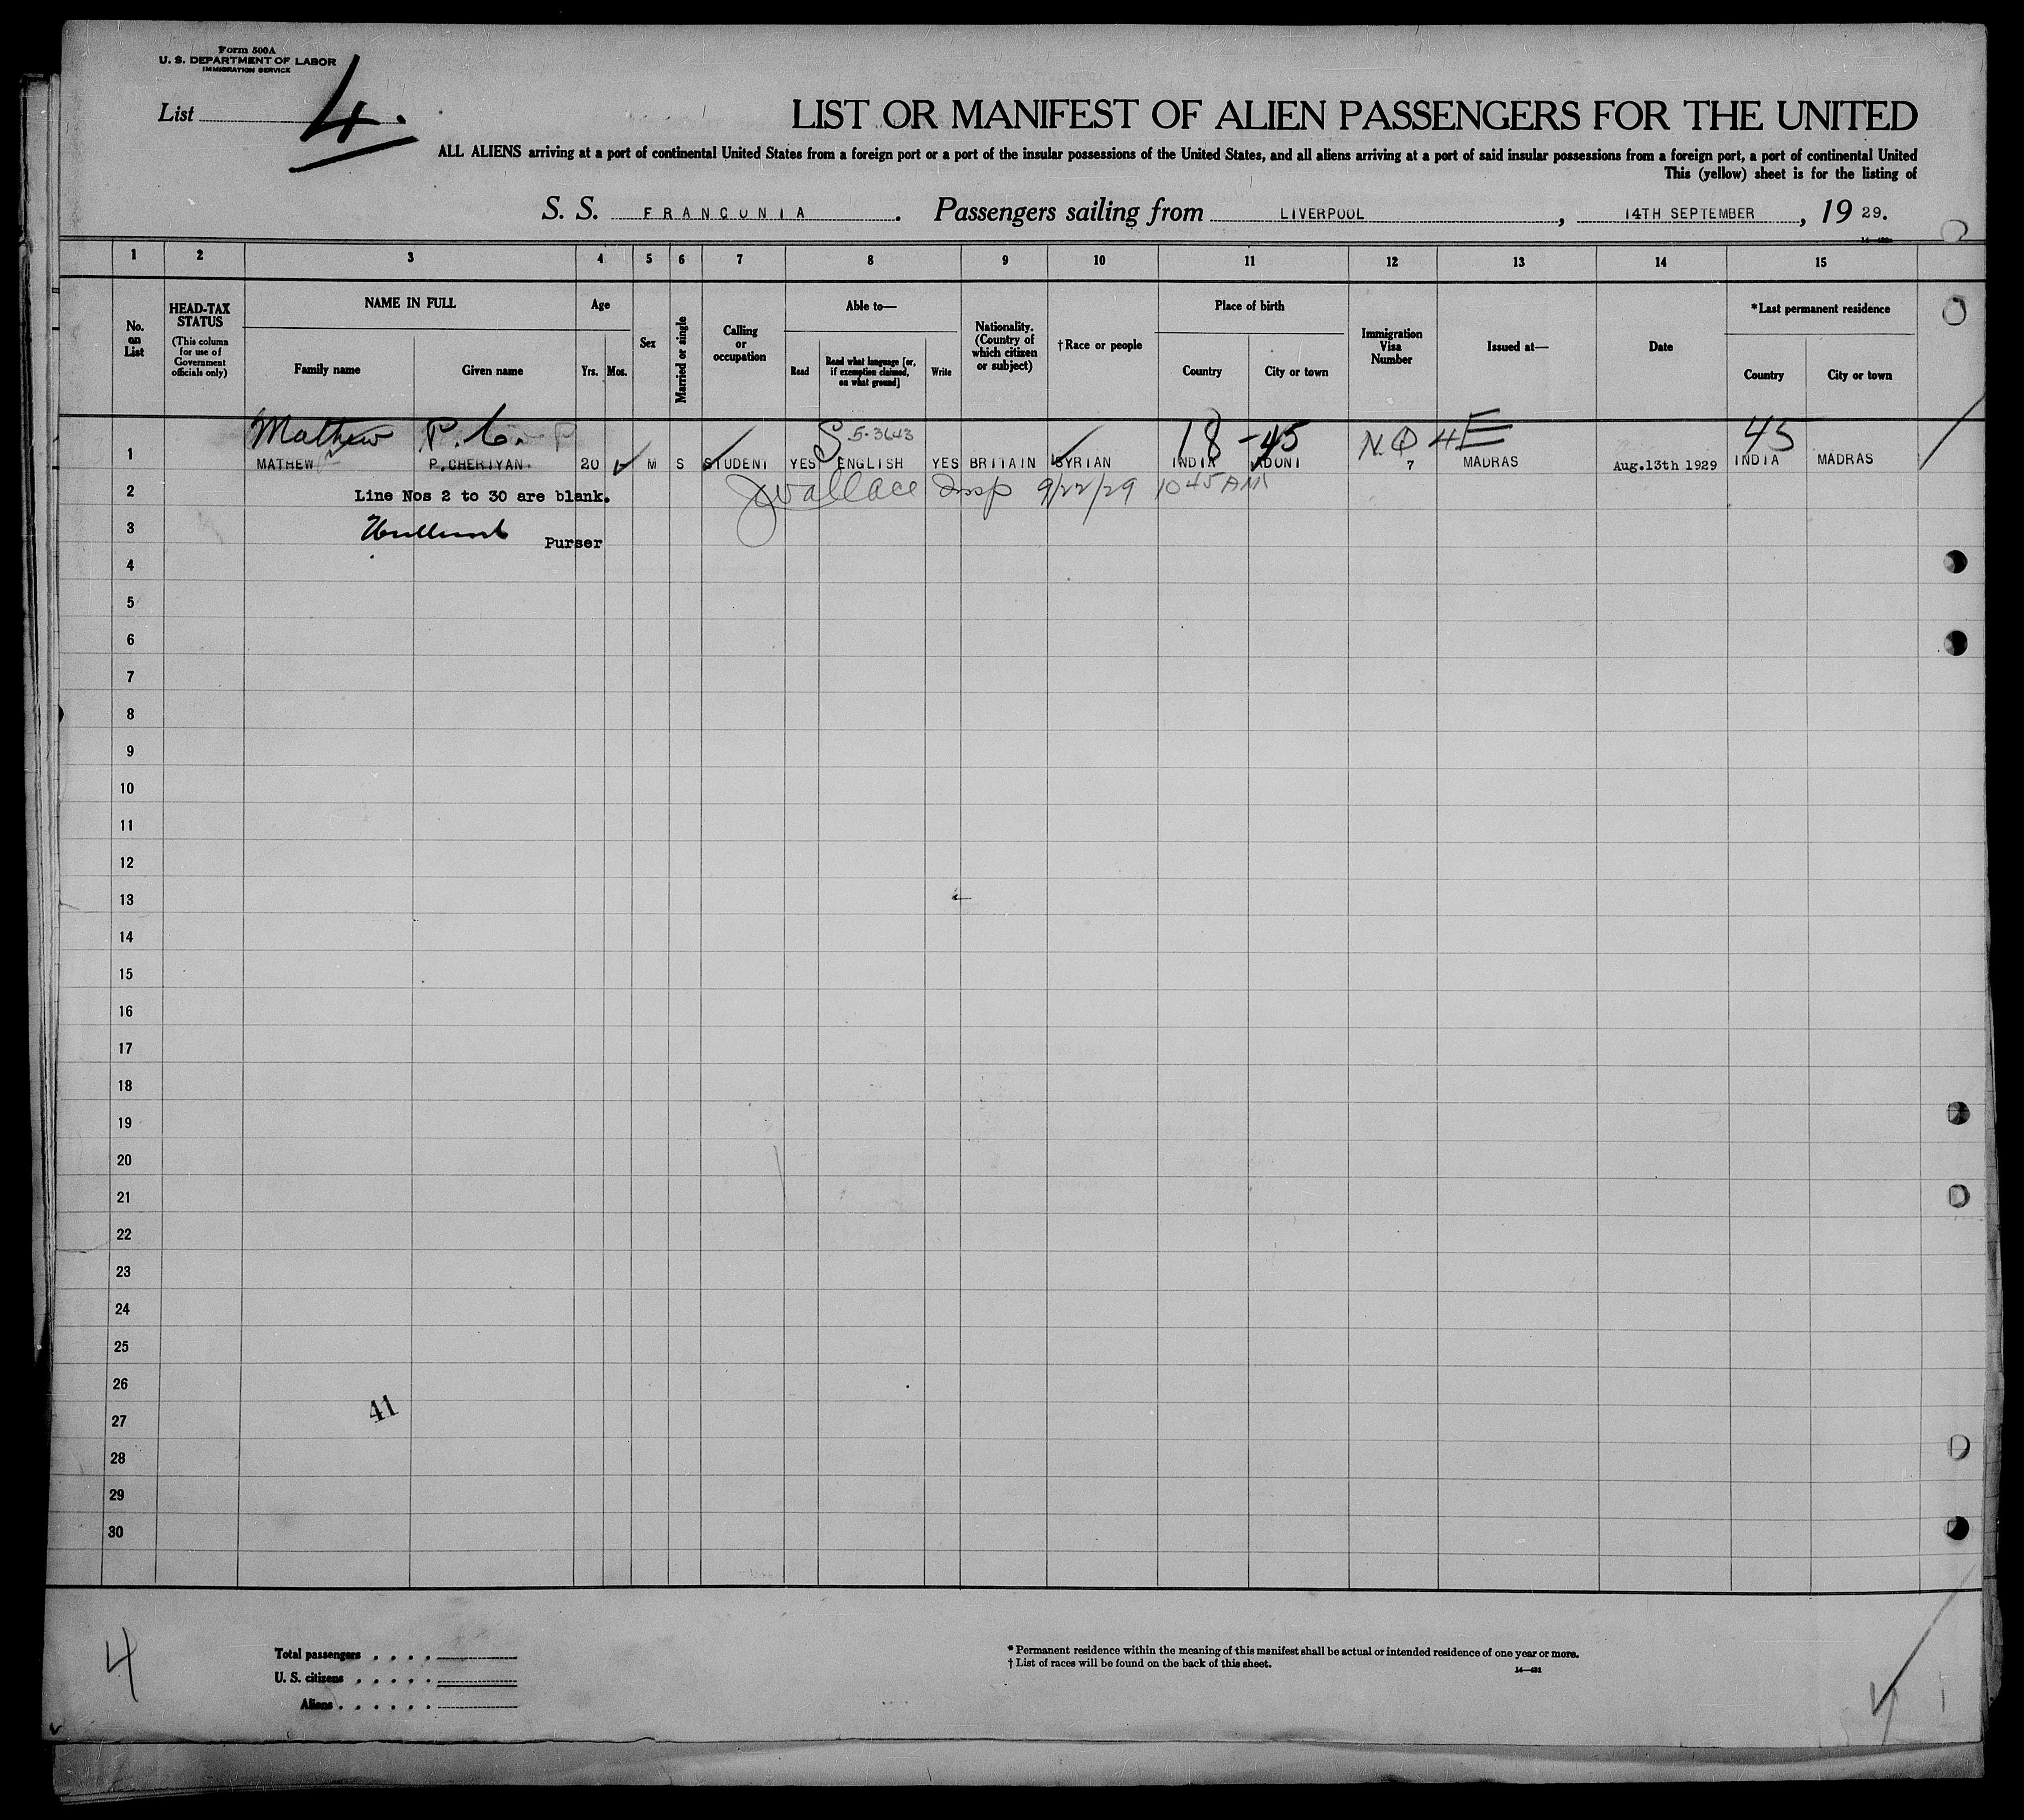 Form 500A
U. S. DEPARTMENT OF LABOR
IMMIGRATION SERVICE
List 4.
LIST OR MANIFEST OF ALIEN PASSENGERS FOR THE UNITED
ALL ALIENS arriving at a port of continental United States from a foreign port or a port of the insular possessions of the United States, and all aliens arriving at a port of said insular possessions from a foreign port, a port of continental United
This (yellow) sheet is for the listing of
S. S. FRANCONIA. Passengers sailing from LIVERPOOL, 14TH SEPTEMBER, 19 29.
1 2 3 4 5 6 7 8 9 10 11 12 13 14 15
No. on List
HEAD-TAX STATUS
(This column for use of Government officials only)
NAME IN FULL
Family name Given name
Age
Yrs. Mos.
Sex
Married or single
Calling or occupation
Able to—
Read
Read what language [or, if exemption claimed, on what ground]
Write
Nationality. (Country of which citizen or subject)
†Race or people
Place of birth
Country City or town
Immigration Visa Number
Issued at—
Date
*Last permanent residence
Country City or town
Mathew P. C. S 5-3643 18-45 N.Q 4E 45
1 MATHEW P.CHERIYAN. 20 M S STUDENT YES ENGLISH YES BRITAIN SYRIAN INDIA ADONI 7 MADRAS Aug.13th 1929 INDIA MADRAS
2 Line Nos 2 to 30 are blank. Wallace Insp 9/22/29 1045 AM
3 Purser
4
5
6
7
8
9
10
11
12
13
14
15
16
17
18
19
20
21
22
23
24
25
26
27 41
28
29
30
4
Total passengers . . . .
U. S. citizens . . . . .
Aliens . . . . . .
* Permanent residence within the meaning of this manifest shall be actual or intended residence of one year or more.
† List of races will be found on the back of this sheet.
14—421
4